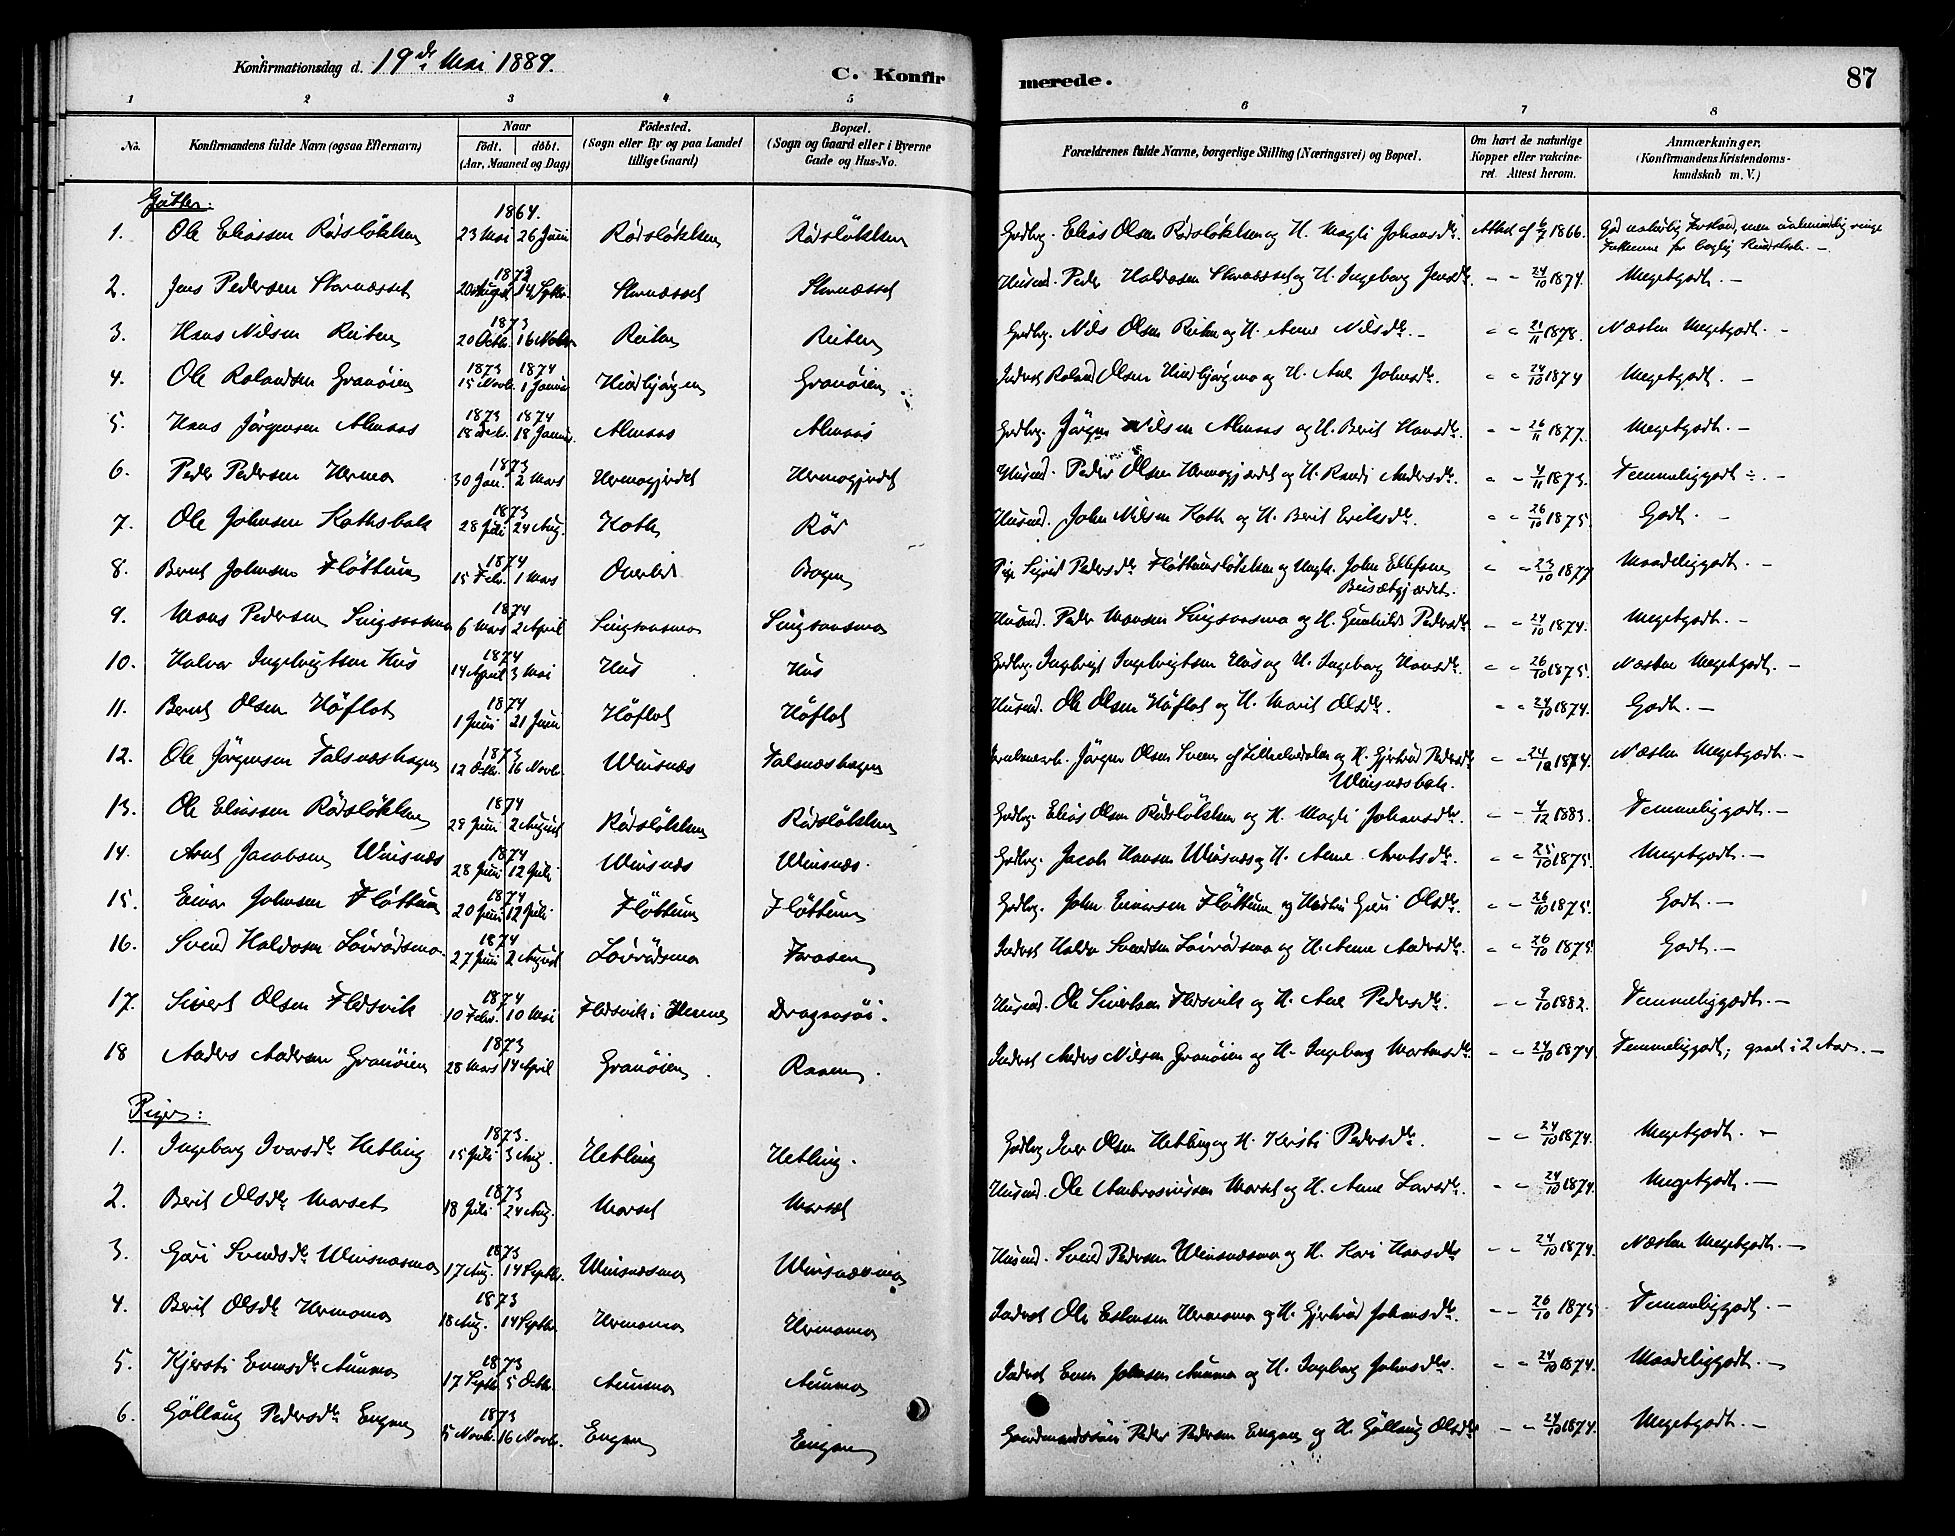 Konfirmationsdag d. 19de Mai 1889.
C. Konfirmerede.
87
1 2 3 4 5 6 7 8
No. Konfirmandens fulde Navn (ogsaa Efternavn) Naar födt. döbt. (Aar, Maaned og Dag) Födested. (Sogn eller By og paa Landet tillige Gaard) Bopæl. (Sogn og Gaard eller i Byerne Gade og Hus-No. Forældrenes fulde Navne, borgerlige Stilling (Næringsvei) og Bopæl. Om havt de naturlige Kopper eller vakcineret. Attest herom. Anmærkninger. (Konfirmandens Kristendomskundskab m. V.)
Gutter:
1. Ole Eliassen Rödslökken 1864. 23 Mai 26 Juni Rödslökken Rödslökken Gdbrg. Elias Olsen Rödslökken og H. Magli Johnsdtr. Attest af 6/7 1866. God naturlig Forstand, men
2. Jens Pedersen 1873 20 August 14 Septbr. Husmd. Peder Haldosen og H. Ingeborg Jensdtr. - - 24/10 1874. Megetgodt. -
3. Hans Nilsen Reiten 1873 20 Octbr. 16 Novbr. Reiten Reiten Gdbrg. Nils Olsen Reiten og H. Anne Nilsdtr. - " " 21/11 1878. Næsten Megetgodt. -
4. Ole Rolandsen Granöien 1873 15 Novb. 1874 1 Januar Hindbjörgen Granöien Inderst Roland Olsen Hindbjörgmo og H. Ane Johnsdtr. " " 24/10 1874 Megetgodt. -
5. Hans Jörgensen Almaas 1873 18 Decb. 1874 18 Januar Almaas Almaas Gdbrg. Jörgen Nilsen Almaas og H. Berit Hansdtr. - - 26/11 1877. Megetgodt. -
6. Peder Pedersen Hermo 1873 30 Jan. 2 Mars Hermogjerdet Hermogjerdet Husmd. Peder Olsen Hermogjærdet og H. Randi Andersdtr. " - 4/11 1873. Temmeliggodt -
7. Ole Johnsen Kothsbak 1873 28 Juli 24 Aug. Koth Rör Husmd. John Nilsen Koth og H. Berit Eriksdtr. " " 26/10 1875. Godt. -
8. Bernt Johnsen Flöttum 1874 15 Feb. 1 Mars Overlid Bogen Pige Sigrid Pedersdtr Flöttumslökken og Ungk. John Ellefsen
" - 23/10 1877 Maadeliggodt. -
9. Mons Pedersen Singsaasmo 1874 6 Mars 2 April Singsaasmo Singsaasmo Husmd. Peder Monsen Singsaasmo og H. Gunhild Pedersdtr - - 24/10 1874. Megetgodt. -
10. Halvor Ingebrigtsen Hus 1874 14 April 3 Mai Hus Hus Gdbrg. Ingebrigt Ingebrigtsen Hus og H. Ingeborg Hansdtr. " " 26/10 1875. Næsten Megetgodt. -
11. Bernt Olsen Höflot 1874 1 Juni 21 Juni Höflot Höflot Husmd. Ole Olsen Höflot og H. Marit Olsdtr. " " 24/10 1874. Godt. -
12. Ole Jörgensen Talsneshagen 1873 12 Octbr. 16 Novb. Winsnes Talsneshagen Jörgen Olsen af Lillehaldalen og H. Gjertrud Pedersdtr
Winsnesbak. - - 24/10 1874. Næsten Megetgodt. -
13. Ole Eliassen Rödslökken 1874 29 Juni 2 August Rödslökken Rödslökken Gdbrg. Elias Olsen Rödslökken og H. Magli Johansdtr. " - 4/12 1883. Temmeliggodt. -
14. Arnt Jacobsen Winsnes 1874 28 Juni 12 Juli Winsnes Winsnes. Gdbrg. Jacob Hansen Winsnes og H. Anne Arntsdtr. " " 25/10 1875. Megetgodt. -
15. Einar Johnsen Flöttum 1874 20 Juni 12 Juli Flöttum Flöttum Gdbrg. John Einarsen Flöttum og Hustru Guri Olsdtr. " - 26/10 1875. Godt. -
16. Svend Haldosen Lövrödsmo 1874 27 Juni 2 August Lövrödsmo Foraasen Inderst Haldo Svendsen Lövrödsmo og H. Anne Andersdtr. " " 26/10 1875. Godt. -
17. Sivert Olsen Flesvik 1874 10 Febr. 10 Mai Flesvik i Hemne Dragaasöi. Husmd. Ole Sivertsen Flesvik og H. Ane Pedersdtr. - - 9/10 1882. Temmeliggodt. -
18 Anders Andersen Granöien 1873 28 Mars 14 April Granöien Raaen. Inderst Anders Nilsen Granöien og H. Ingeborg Mortensdtr. - - 24/10 1874. Temmeliggodt; gaaet i 2 Aar. -
Piger:
1. Ingeborg Ivarsdtr Hetling 1873. 15 Juli 3 Aug. Hetling Hetling. Gdbrg Iver Olsen Hetling og H. Kirsti Pedersdtr. - " 24/10 1874. Megetgodt. -
2. Berit Olsdtr Morset 1873 18 Juli 24 Aug. Morset Morset Husmd. Ole Ambrosiussen Morset og H. Anne Larsdtr. " " 24/10 1874. Megetgodt. -
3. Guri Svendsdtr Winsnesmo 1873 17 Aug. 14 Septbr. Winsnesmo Winsnesmo Husmd. Svend Pedersen Winsnesmo og H. Kari Hansdtr - - 24/10 1874. Næsten Megetgodt. -
4. Berit Olsdtr Hermomo 1873 18 Aug. 14 Septbr. Hermomo Hermomo Inderst Ole Estensen Hermomo og H. Gjertrud Johnsdtr. " - 26/10 1875 Temmeliggodt. -
5. Kjersti Evensdtr Aunmo 1873 17 Septbr. 5 Octbr. Aunmo Aunmo Inderst Even Johnsen Aunmo og H. Ingeborg Johnsdtr. " " 24/10 1874. Maadeliggodt. -
6. Göllaug Pedersdtr Engen 1873 5 Novb. 16 Novb. Engen Engen Peder Pedersen Engen og H. Göllaug Olsdtr - - 24/10 1874. Megetgodt. -